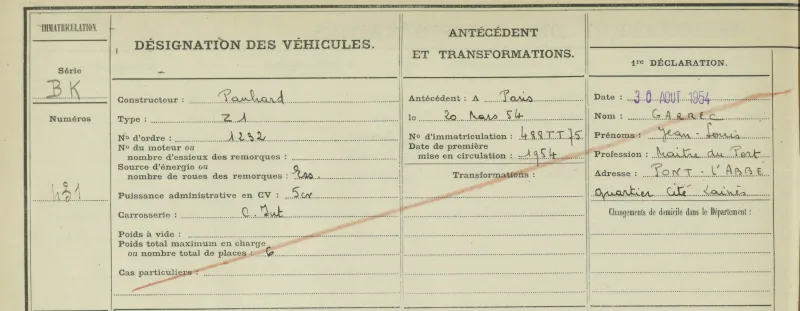 IMMATRICULATION.
Série
BK
Numéros
431
DÉSIGNATION DES VÉHICULES.
Constructeur : Panhard
Type : Z 1
No d'ordre : 1232
No du moteur ou
nombre d'essieux des remorques :
Source d'énergie ou
nombre de roues des remorques : Ess.
Puissance administrative en CV : 5 cv
Carrosserie : C. Int
Poids à vide :
Poids total maximum en charge
ou nombre total de places : 6
Cas particuliers :
ANTÉCÉDENT
ET TRANSFORMATIONS.
Antécédent : A Paris
le 20 Mars 54
No d'immatriculation : 488TT75
Date de première
mise en circulation : 1954
Transformations :
1re DÉCLARATION.
Date : 30 AOUT 1954
Nom : GARREC
Prénoms : Jean-Louis
Profession : Maitre du Port
Adresse : PONT-L'ABBE
quartier Cité
Changements de domicile dans le Département :